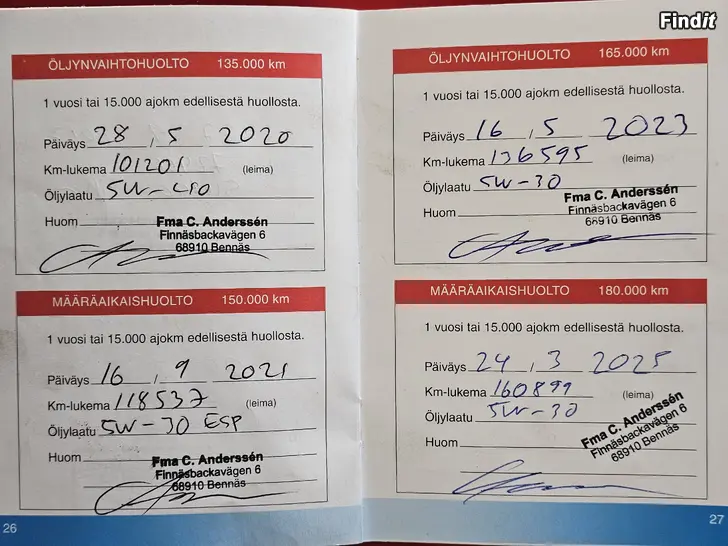 Findit
ÖLJYNVAIHTOHUOLTO 135.000 km
1 vuosi tai 15.000 ajokm edellisestä huollosta.
Päiväys 28 , 5 2020
Km-lukema 101201 (leima)
Öljylaatu 5W-40
Huom
Fma C. Anderssén
Finnäsbackavägen 6
68910 Bennäs
MÄÄRÄAIKAISHUOLTO 150.000 km
1 vuosi tai 15.000 ajokm edellisestä huollosta.
Päiväys 16 , 9 2021
Km-lukema 118537 (leima)
Öljylaatu 5W-30 ESP
Huom
Fma C. Anderssén
Finnäsbackavägen 6
68910 Bennäs
26
ÖLJYNVAIHTOHUOLTO 165.000 km
1 vuosi tai 15.000 ajokm edellisestä huollosta.
Päiväys 16 , 5 2023
Km-lukema 136595 (leima)
Öljylaatu 5W-30
Huom
Fma C. Anderssén
Finnäsbackavägen 6
68910 Bennäs
MÄÄRÄAIKAISHUOLTO 180.000 km
1 vuosi tai 15.000 ajokm edellisestä huollosta.
Päiväys 24 , 3 2025
Km-lukema 160899 (leima)
Öljylaatu 5W-30
Huom
Fma C. Anderssén
Finnäsbackavägen 6
68910 Bennäs
27